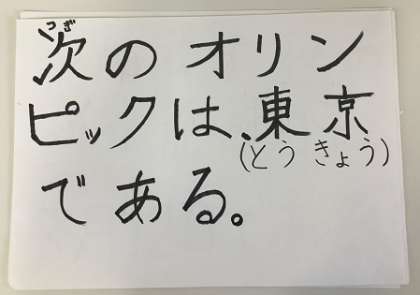 つぎ
次のオリン
ピックは、東京
(とうきょう)
である。